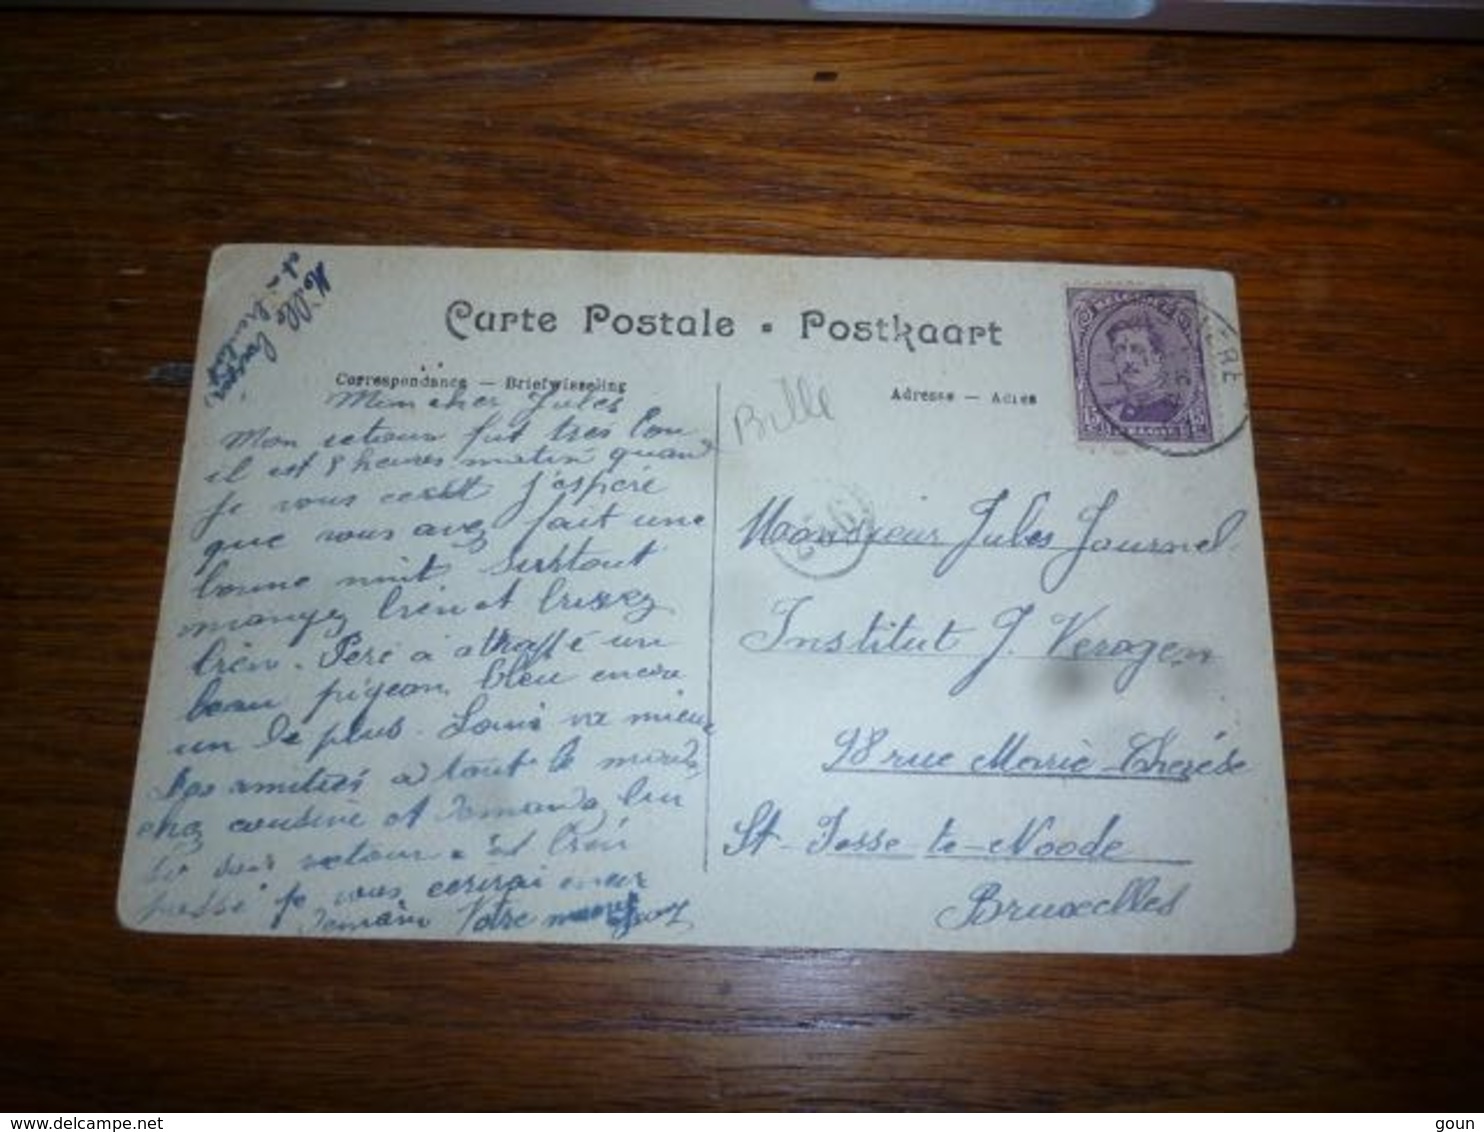 Carte Postale • Postkaart
Correspondance — Briefwisseling
Adresse — Adres
Mon cher Jules
Mon retour fut très bon
il est 8 heures matin quand
je vous j'espère
que vous avez fait une
bonne nuit surtout
mangez bien et
bien. Père a attrappé un
beau pigeon bleu encore
un de plus. Louis va mieux
Des amitiés à tout le monde
chez cousine et demande lui
si son retour a été bien
passé je vous écrirai encor
demain Votre
Mille baisers
et à bientôt
Bille
Monsieur Jules Journel
Institut J. Veragen
98 rue Marie-Thérèse
St-Josse-te-Noode
Bruxelles
BELGIQUE
15 BELGIE 15
delcampe.net
goun